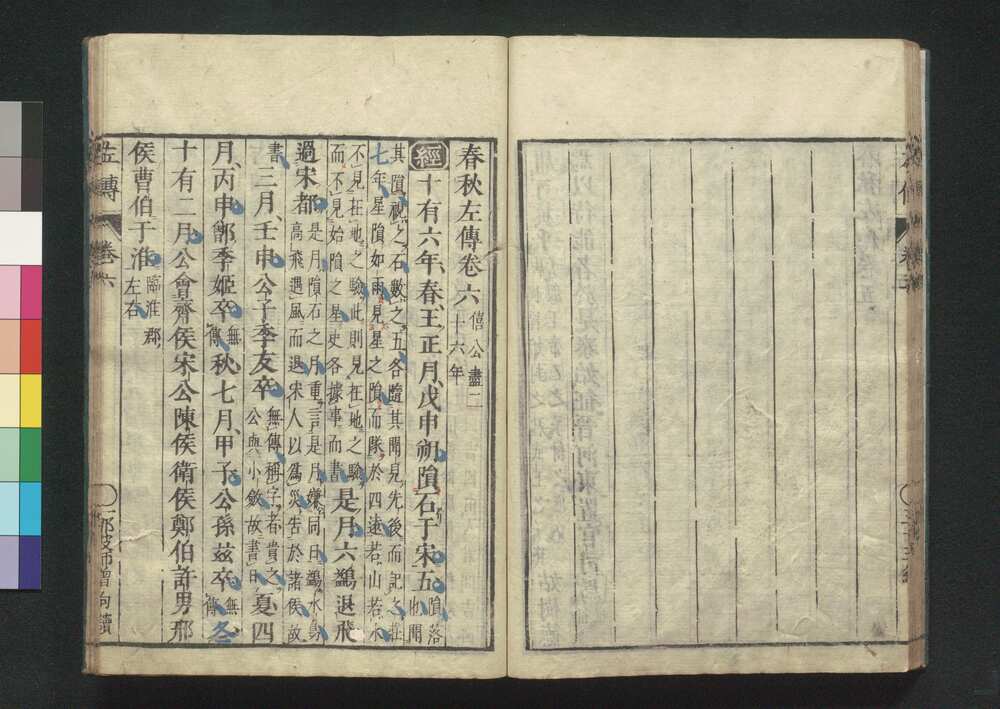 春秋左傳卷六 僖公盡二十六年
經十有六年春王正月戊申朔隕石于宋五 隕落也聞
其隕視之石數之五各隨其聞見先後而記之莊
七年星隕如雨見星之隕而隊於四遠若山若水
不見在地之驗此則見在地之驗
而不見始隕之星史各據事而書 是月六鷁退飛
過宋都 是月隕石之月重言是月嫌同日鷁水鳥
高飛遇風而退宋人以為災告於諸侯故
書 三月壬申公子季友卒 無傳稱字者貴之
公與小斂故書日 夏四
月丙申鄫季姬卒 無傳 秋七月甲子公孫茲卒 無傳 冬
十有二月公會齊侯宋公陳侯衛侯鄭伯許男邢
侯曹伯于淮 臨淮郡左右
左傳 卷六